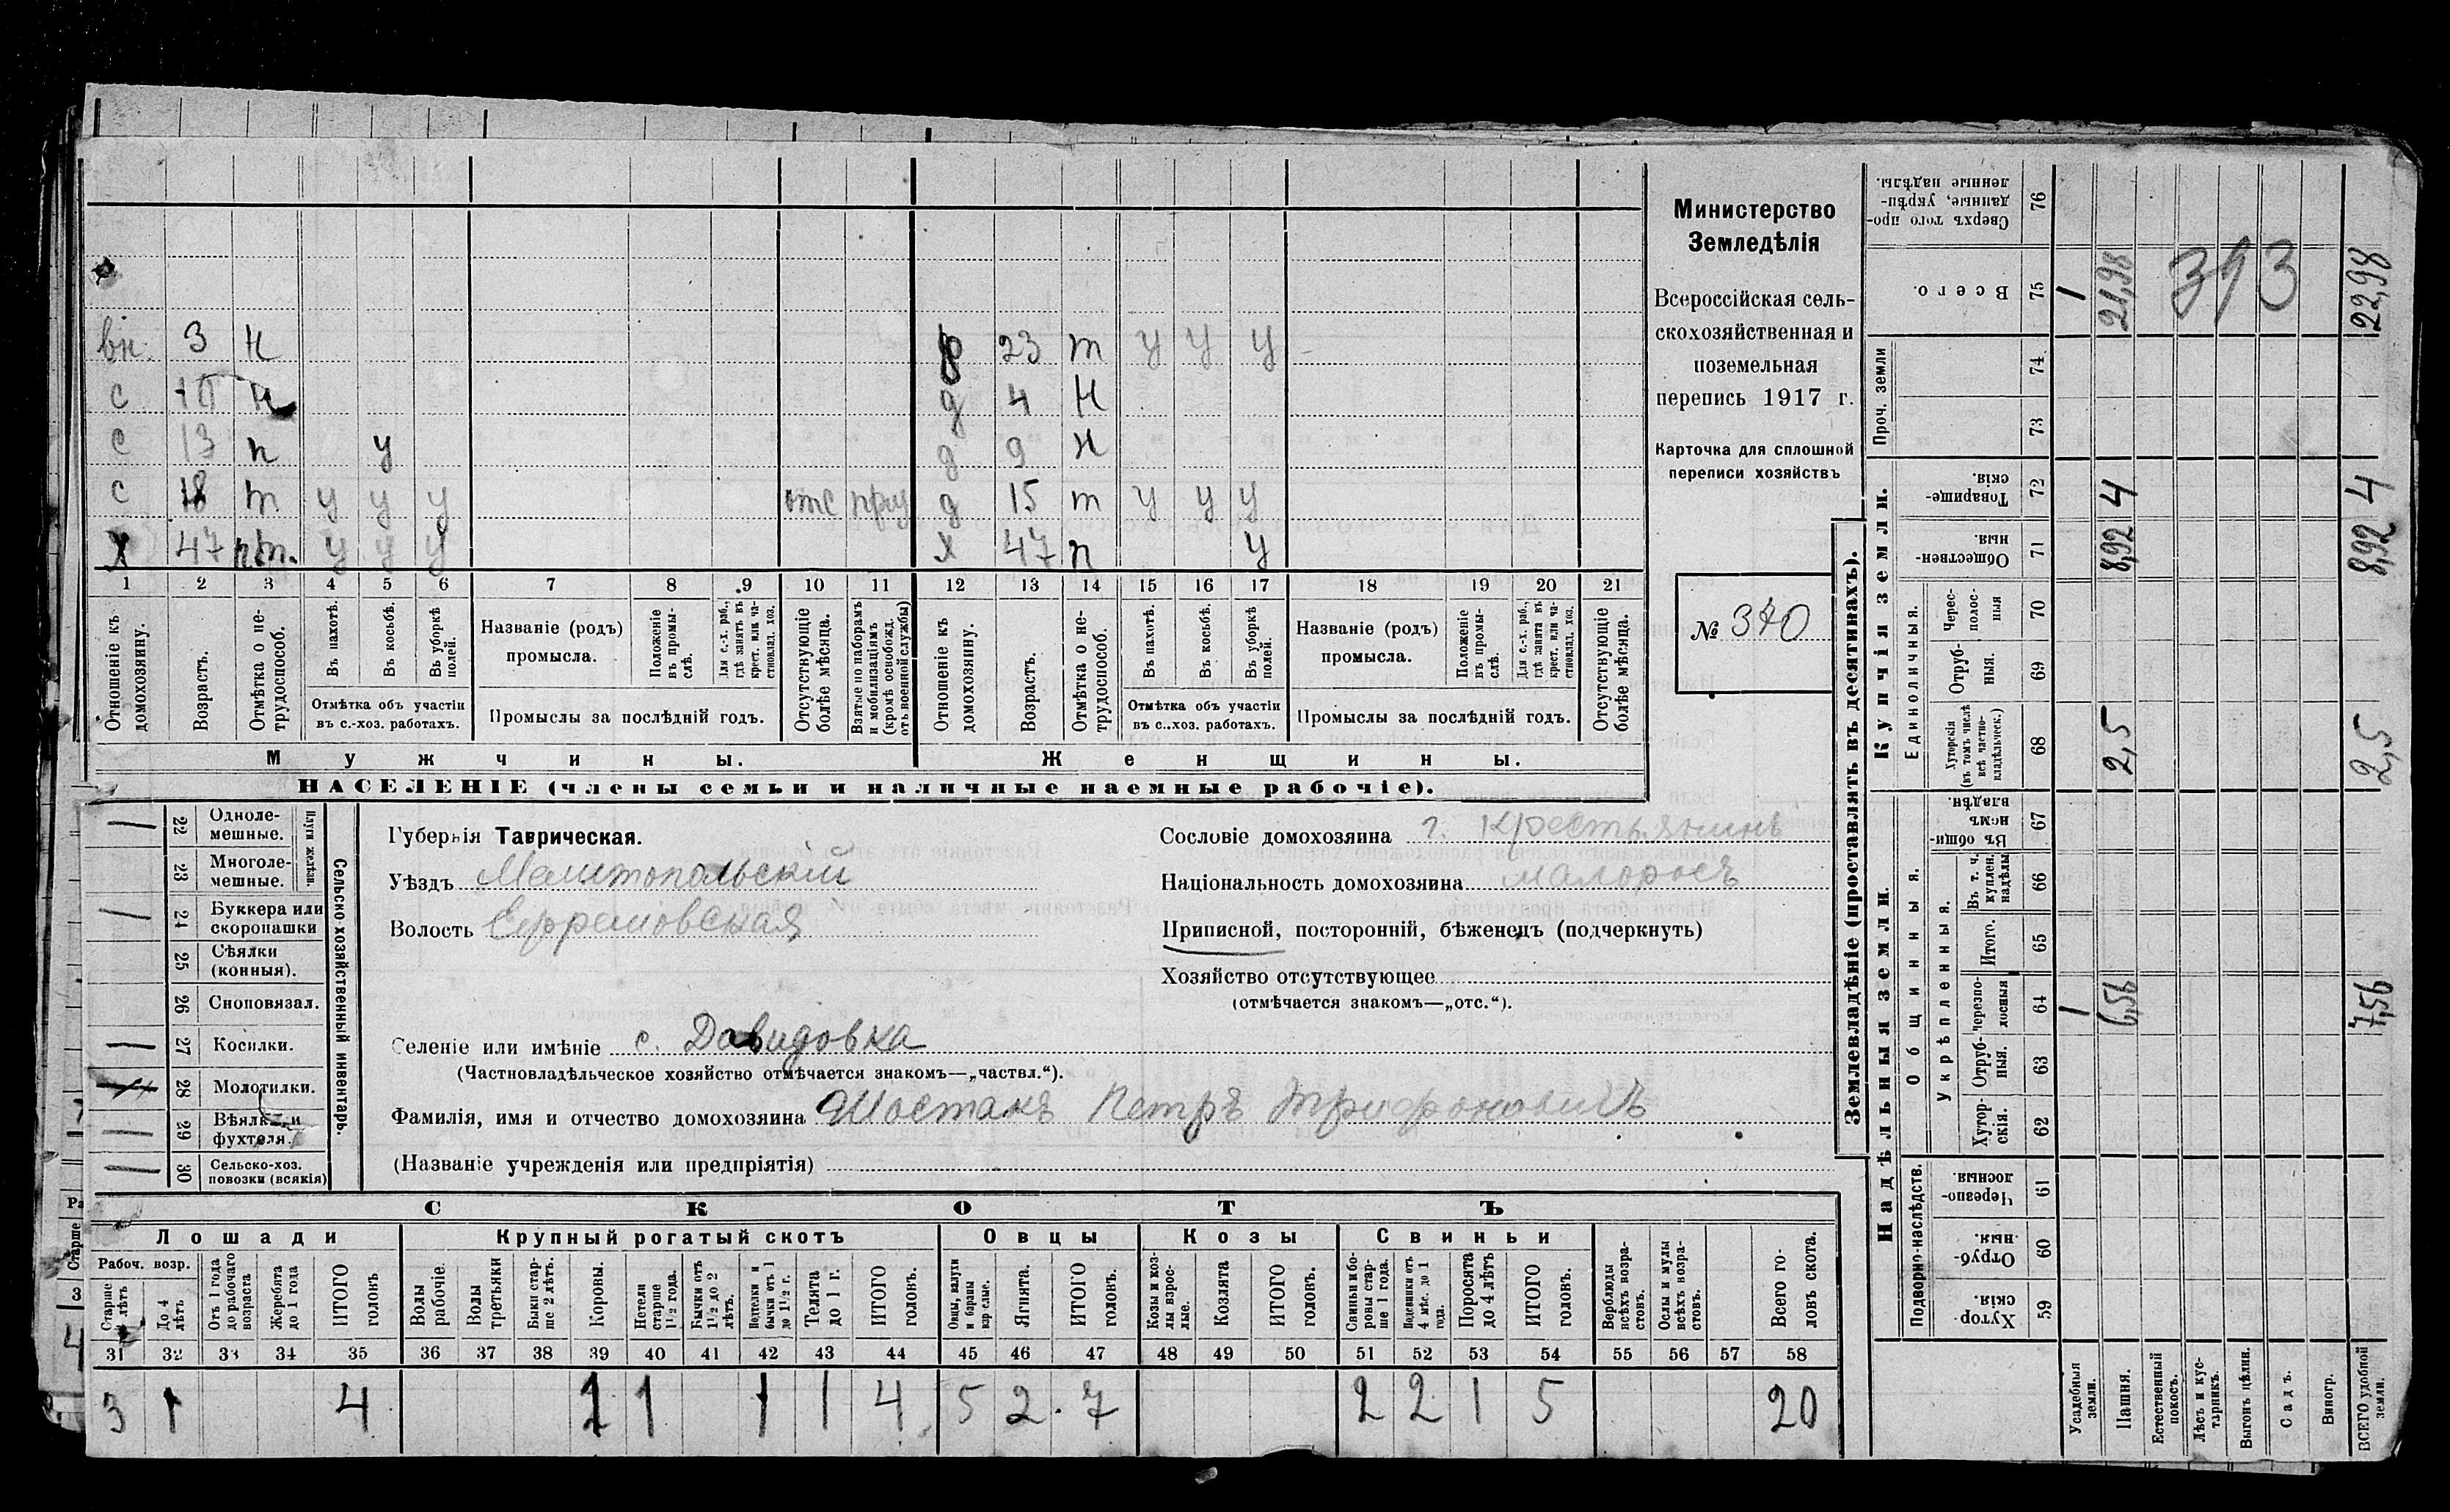 вн. 3 н 23 т у у у
с 10 н д 4 н
с 13 п у д 9 н
с 18 т у у у отс д 15 т у у у
х 47 пт. у у у х 47 п у
1 2 3 4 5 6 7 8 9 10 11 12 13 14 15 16 17 18 19 20 21
Отношеніе къ домохозяину.
Возрастъ.
Отмѣтка о не-трудоспособ.
Въ пахотѣ.
Въ косьбѣ.
Въ уборкѣ полей.
Отмѣтка объ участіи
въ с.-хоз. работахъ.
Названіе (родъ)
промысла.
Положеніе въ промы-слѣ.
Для с.-х. раб., гдѣ занятъ въ крест. или ча-стновлад. хоз.
Промыслы за послѣдній годъ.
Отсутствующіе болѣе мѣсяца.
Взятые по наборамъ и мобилизаціямъ (кромѣ освобожд. отъ военной службы)
Отношеніе къ домохозяину.
Возрастъ.
Отмѣтка о не-трудоспособ.
Въ пахотѣ.
Въ косьбѣ.
Въ уборкѣ полей.
Отмѣтка объ участіи
въ с.-хоз. работахъ.
Названіе (родъ)
промысла.
Положеніе въ промы-слѣ.
Для с.-х. раб., гдѣ занята въ крест. или ча-стновлад. хоз.
Промыслы за послѣдній годъ.
Отсутствующіе болѣе мѣсяца.
Мужчины. Женщины.
НАСЕЛЕНІЕ (члены семьи и наличные наемные рабочіе).
Министерство
Земледѣлія
Всероссійская сель-
скохозяйственная и
поземельная
перепись 1917 г.
Карточка для сплошной
переписи хозяйствъ
№ 370
Сельско-хозяйственный инвентарь.
Плуги желѣзн.
22 Одноле-мешные.
23 Многоле-мешные.
24 Буккера или скоропашки
25 Сѣялки (конныя).
26 Сноповязал.
27 Косилки.
28 Молотилки.
29 Вѣялки и фухтеля.
30 Сельско-хоз. повозки (всякія)
Губернія Таврическая.
Уѣздъ Мелитопольскій
Волость Ефремовская
Селеніе или имѣніе с. Давидовка
(Частновладѣльческое хозяйство отмѣчается знакомъ—„частвл.“).
Фамилія, имя и отчество домохозяина Шостакъ Петръ Трифоновичъ
(Названіе учрежденія или предпріятія)
Сословіе домохозяина г. Крестьянинъ
Національность домохозяина малоросъ
Приписной, посторонній, бѣженецъ (подчеркнуть)
Хозяйство отсутствующее
(отмѣчается знакомъ—„отс.“).
СКОТЪ
Лошади Крупный рогатый скотъ Овцы Козы Свиньи
Рабоч. возр.
Старше 4 лѣтъ
До 4 лѣтъ
Отъ 1 года до рабочаго возраста
Жеребята до 1 года
ИТОГО головъ
Волы рабочіе.
Волы третьяки
Быки стар-ше 2 лѣтъ.
Коровы.
Нетели старше 1½ года.
Бычки отъ 1½ до 2 лѣтъ.
Подтелки и бычки отъ 1 до 1½ г.
Телята до 1 г.
ИТОГО головъ.
Овцы, валухи и бараны взрослые.
Ягнята.
ИТОГО головъ.
Козы и коз-лы взрос-лые.
Козлята
ИТОГО головъ.
Свиньи и бо-ровы стар-ше 1 года.
Подсвинки отъ 4 мѣс. до 1 года.
Поросята до 4 лѣтъ
ИТОГО головъ.
Верблюды всѣхъ возра-стовъ.
Ослы и мулы всѣхъ возра-стовъ.
Всего го-ловъ скота.
31 32 33 34 35 36 37 38 39 40 41 42 43 44 45 46 47 48 49 50 51 52 53 54 55 56 57 58
3 1 4 1 1 1 1 4 5 2 7 2 2 1 5 20
Землевладѣніе (проставлять въ десятинахъ).
Надѣльныя земли. Купчія земли.
Подворно-наслѣдств.
Общинныя.
Укрѣпленныя.
Единоличныя.
Проч. земли
Хутор-скія. 59
Отруб-ныя. 60
Черезпо-лосныя 61
Хутор-скія. 62
Отруб-ныя. 63
Черезпо-лосныя 64
Итого. 65
Въ т. ч. куплен. надѣлы 66
Въ общин-номъ владѣн. 67
Хуторскія (въ томъ числѣ всѣ частно-владѣльческ.) 68
Отруб-ныя. 69
Черес-полос-ныя 70
Обществен-ныя. 71
Товарище-скія. 72
73
74
Всего. 75
Сверхъ того про-данные, укрѣп-ленные надѣлы. 76
Усадебныя земли. 1 1
Пашня. 6,56 2,5 8,92 4 21,98
Естественный покосъ.
Лѣсъ и кус-тарникъ.
Выгонъ цѣлин.
Садъ.
Виногр.
ВСЕГО удобной земли. 7,56 2,5 8,92 4 22,98
313